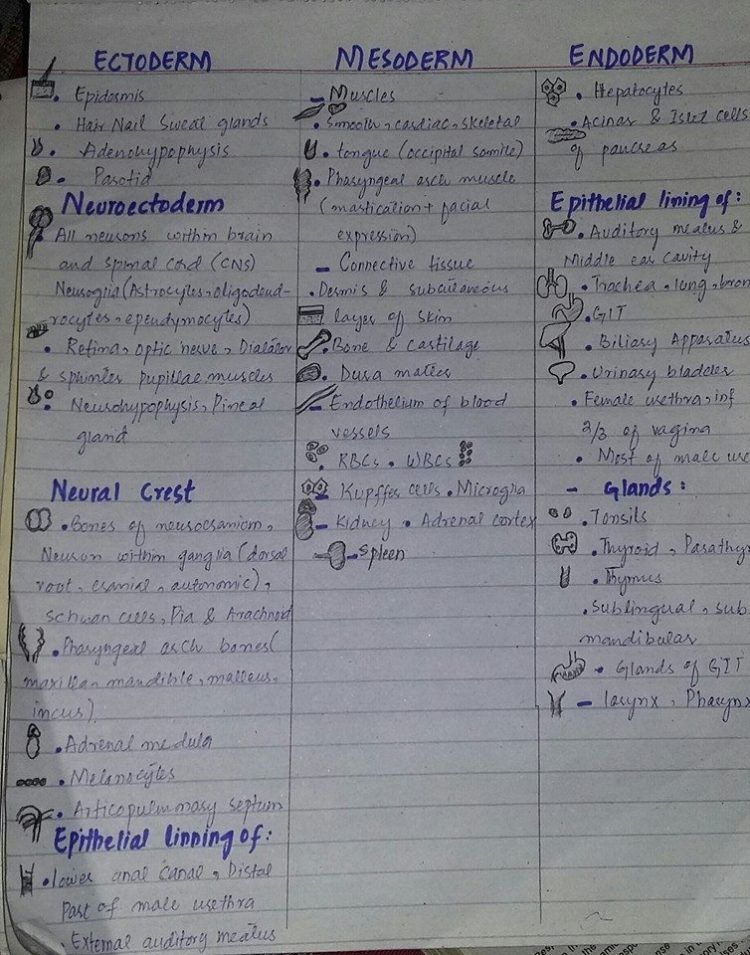 ECTODERM
• Epidermis
• Hair Nail Sweat glands
• Adenohypophysis
• Parotid
Neuroectoderm
• All neurons within brain
and spinal cord (CNS)
Neuroglia (Astrocytes, oligodend-
rocytes, ependymocytes)
• Retina, optic nerve, Dialator
& sphinter pupillae muscles
• Neurohypophysis, Pineal
gland
Neural Crest
• Bones of neurocranium,
Neuron within ganglia (dorsal
root, cranial, autonomic),
Schwan cells, Pia & Arachnoid
• Pharyngeal arch bones(
maxilla, mandible, malleus,
incus),
• Adrenal medula
• Melanocytes
• Articopulmmary septum
Epithelial linning of:
• lower anal canal, Distal
Part of male urethra
• External auditory meatus
MESODERM
– Muscles
• Smooth, cardiac, skeletal
• tongue (occipital somite)
• Pharyngeal arch muscle
(mastication + facial
expression)
– Connective tissue
• Dermis & subcutaneous
layer of skin
• Bone & cartilage
• Dura matter
– Endothelium of blood
vessels
• RBCs • WBCs
– Kupffer cells • Microglia
– Kidney • Adrenal cortex
– Spleen
ENDODERM
• Hepatocytes
• Acinar & Islet cells
of pancreas
Epithelial lining of:
• Auditory meatus &
Middle ear cavity
• Trachea, lung, bron
• GIT
• Biliary Apparatus
• Urinary bladder
• Female urethra, inf
2/3 of vagina
• Most of male ure
– Glands:
• Tonsils
• Thyroid, Parathyr
• Thymus
• Sublingual, sub
mandibular
• Glands of GIT
– larynx, Pharynx